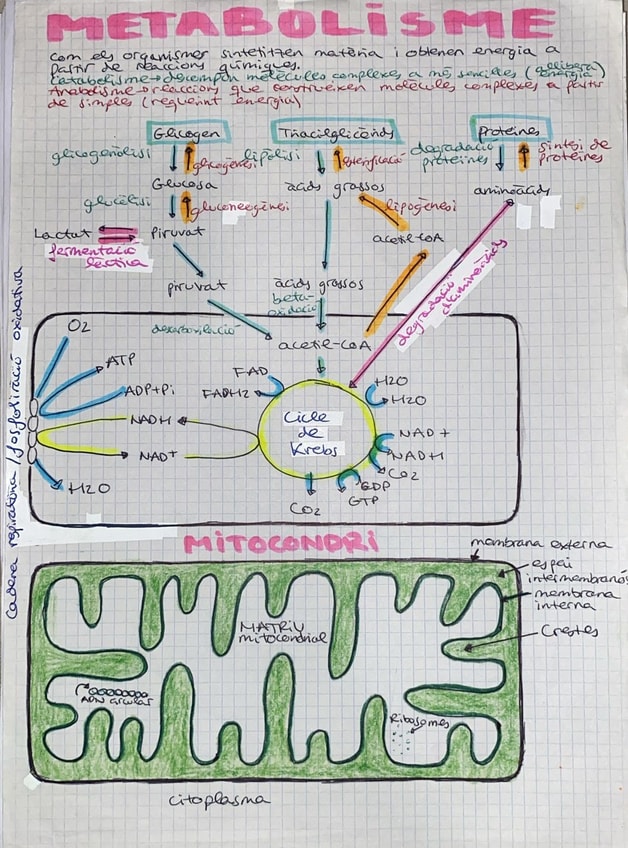 METABOLISME
com els organismes sintetitzen matèria i obtenen energia a
partir de reaccions químiques.
Catabolisme→descompan molècules complexes a més senzilles (allibera energia)
Anabolisme→reaccions que construeixen molècules complexes a partir
de simples (requerint energia)
Glicogen
Triacilglicèrids
Proteïnes
glicogenòlisi
glicogènesi
lipòlisi
esterificació
degradació proteïnes
síntesi de proteïnes
Glucosa
àcids grassos
aminoàcids
glucòlisi
gluconeogènesi
lipogènesi
Lactat
Piruvat
acetil-CoA
fermentació làctica
piruvat
àcids grassos
beta-oxidació
degradació aminoàcids
descarboxilació
acetil-CoA
Cadena respiratòria / fosforilació oxidativa
O2
ATP
ADP+Pi
NADH
NAD+
H2O
FAD
FADH2
Cicle
de
Krebs
H2O
H2O
NAD+
NADH
CO2
GDP
GTP
CO2
MITOCONDRI
membrana externa
espai
intermembranós
membrana
interna
Crestes
MATRIU
mitocondrial
ADN circular
Ribosomes
citoplasma